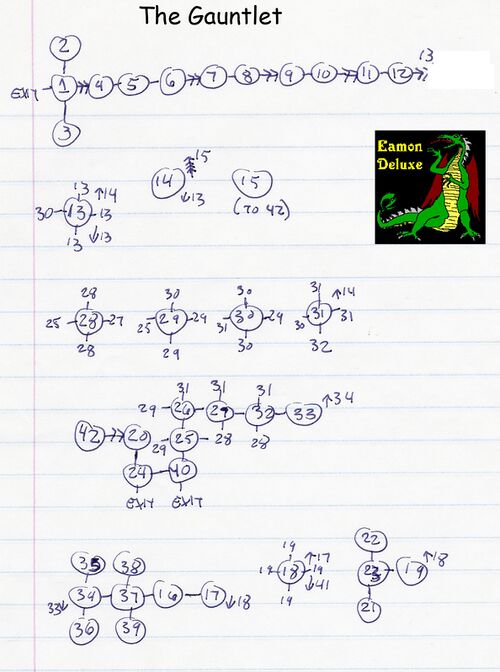 The Gauntlet
2
EXIT 1 4 5 6 7 8 9 10 11 12 13
3
Eamon
Deluxe
15
14 15
↓13 (TO 42)
13 ↑14
30 13 13
13 ↓13
28 30 30 31 ↑14
25 28 27 25 29 29 31 30 29 30 31 31
28 29 30 32
31 31 31
29 26 27 32 33 ↑34
42 20 29 25 28 28
24 40
EXIT EXIT
35 38
33↓ 34 37 16 17 ↓18
36 39
19 ↑17
19 18 19
19 ↓41
22
23 19 ↑18
21